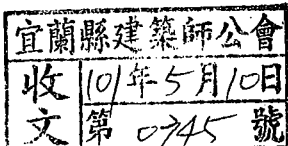 宜蘭縣建築師公會
收文
101年5月10日
第0745號